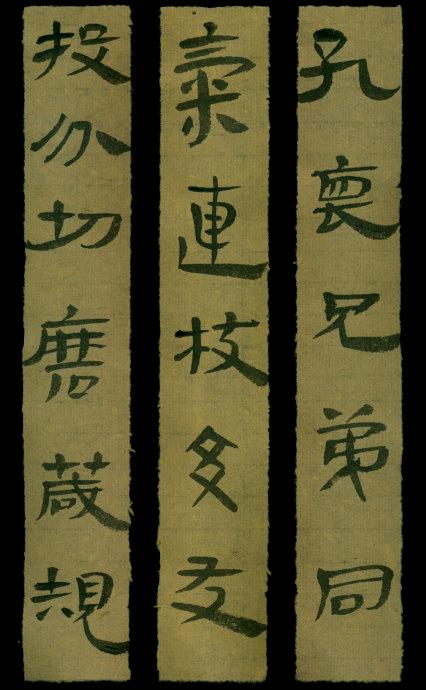 孔褱兄弟同
氣連枝交友
投分切磨葴規